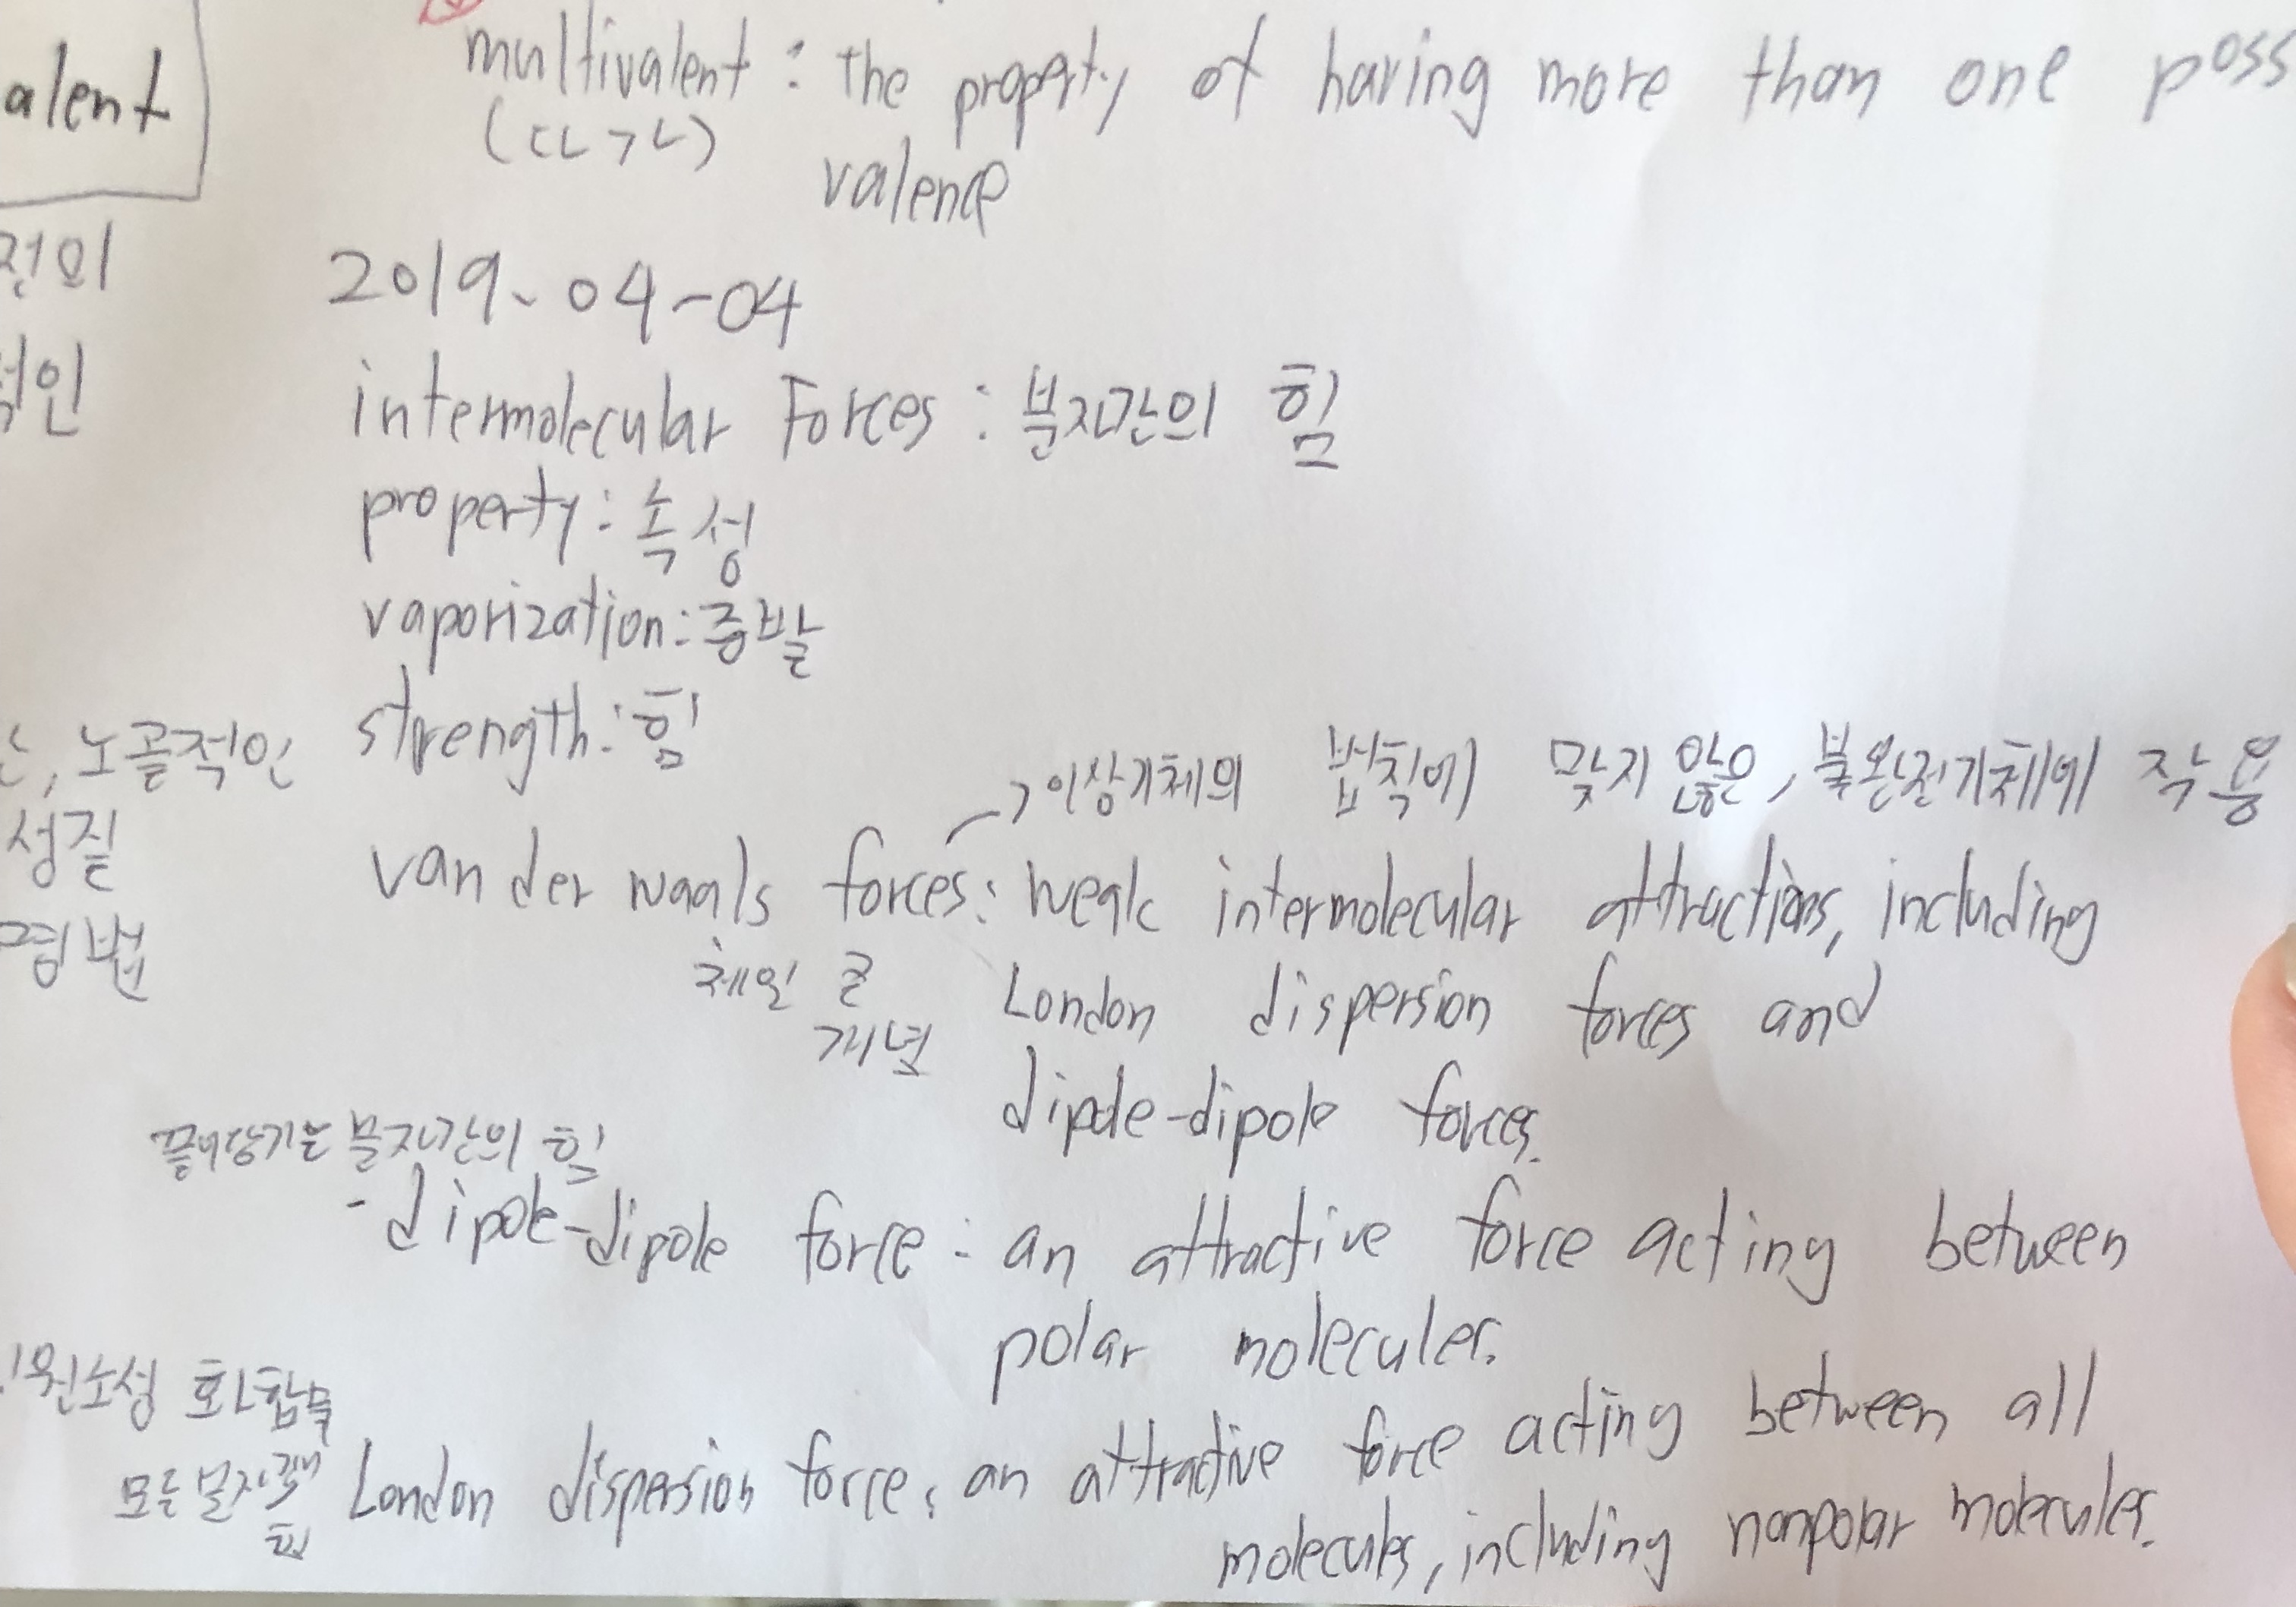 alent
multivalent : the property of having more than one poss
(다가)
valence
전의
적인
2019-04-04
intermolecular Forces : 분자간의 힘
property : 속성
vaporization : 증발
strength : 힘
, 노골적인
성질
명법
→ 이상기체의 법칙에 맞지 않은, 불완전기체에 작용
van der waals forces : weak intermolecular attractions, including
제일 큰
개념
London dispersion forces and
dipole-dipole forces.
끌어당기는 분자간의 힘
-dipole-dipole force : an attractive force acting between
polar molecules.
원소성 화합물
모든 분자
힘
London dispersion force : an attractive force acting between all
molecules, including nonpolar molecules.